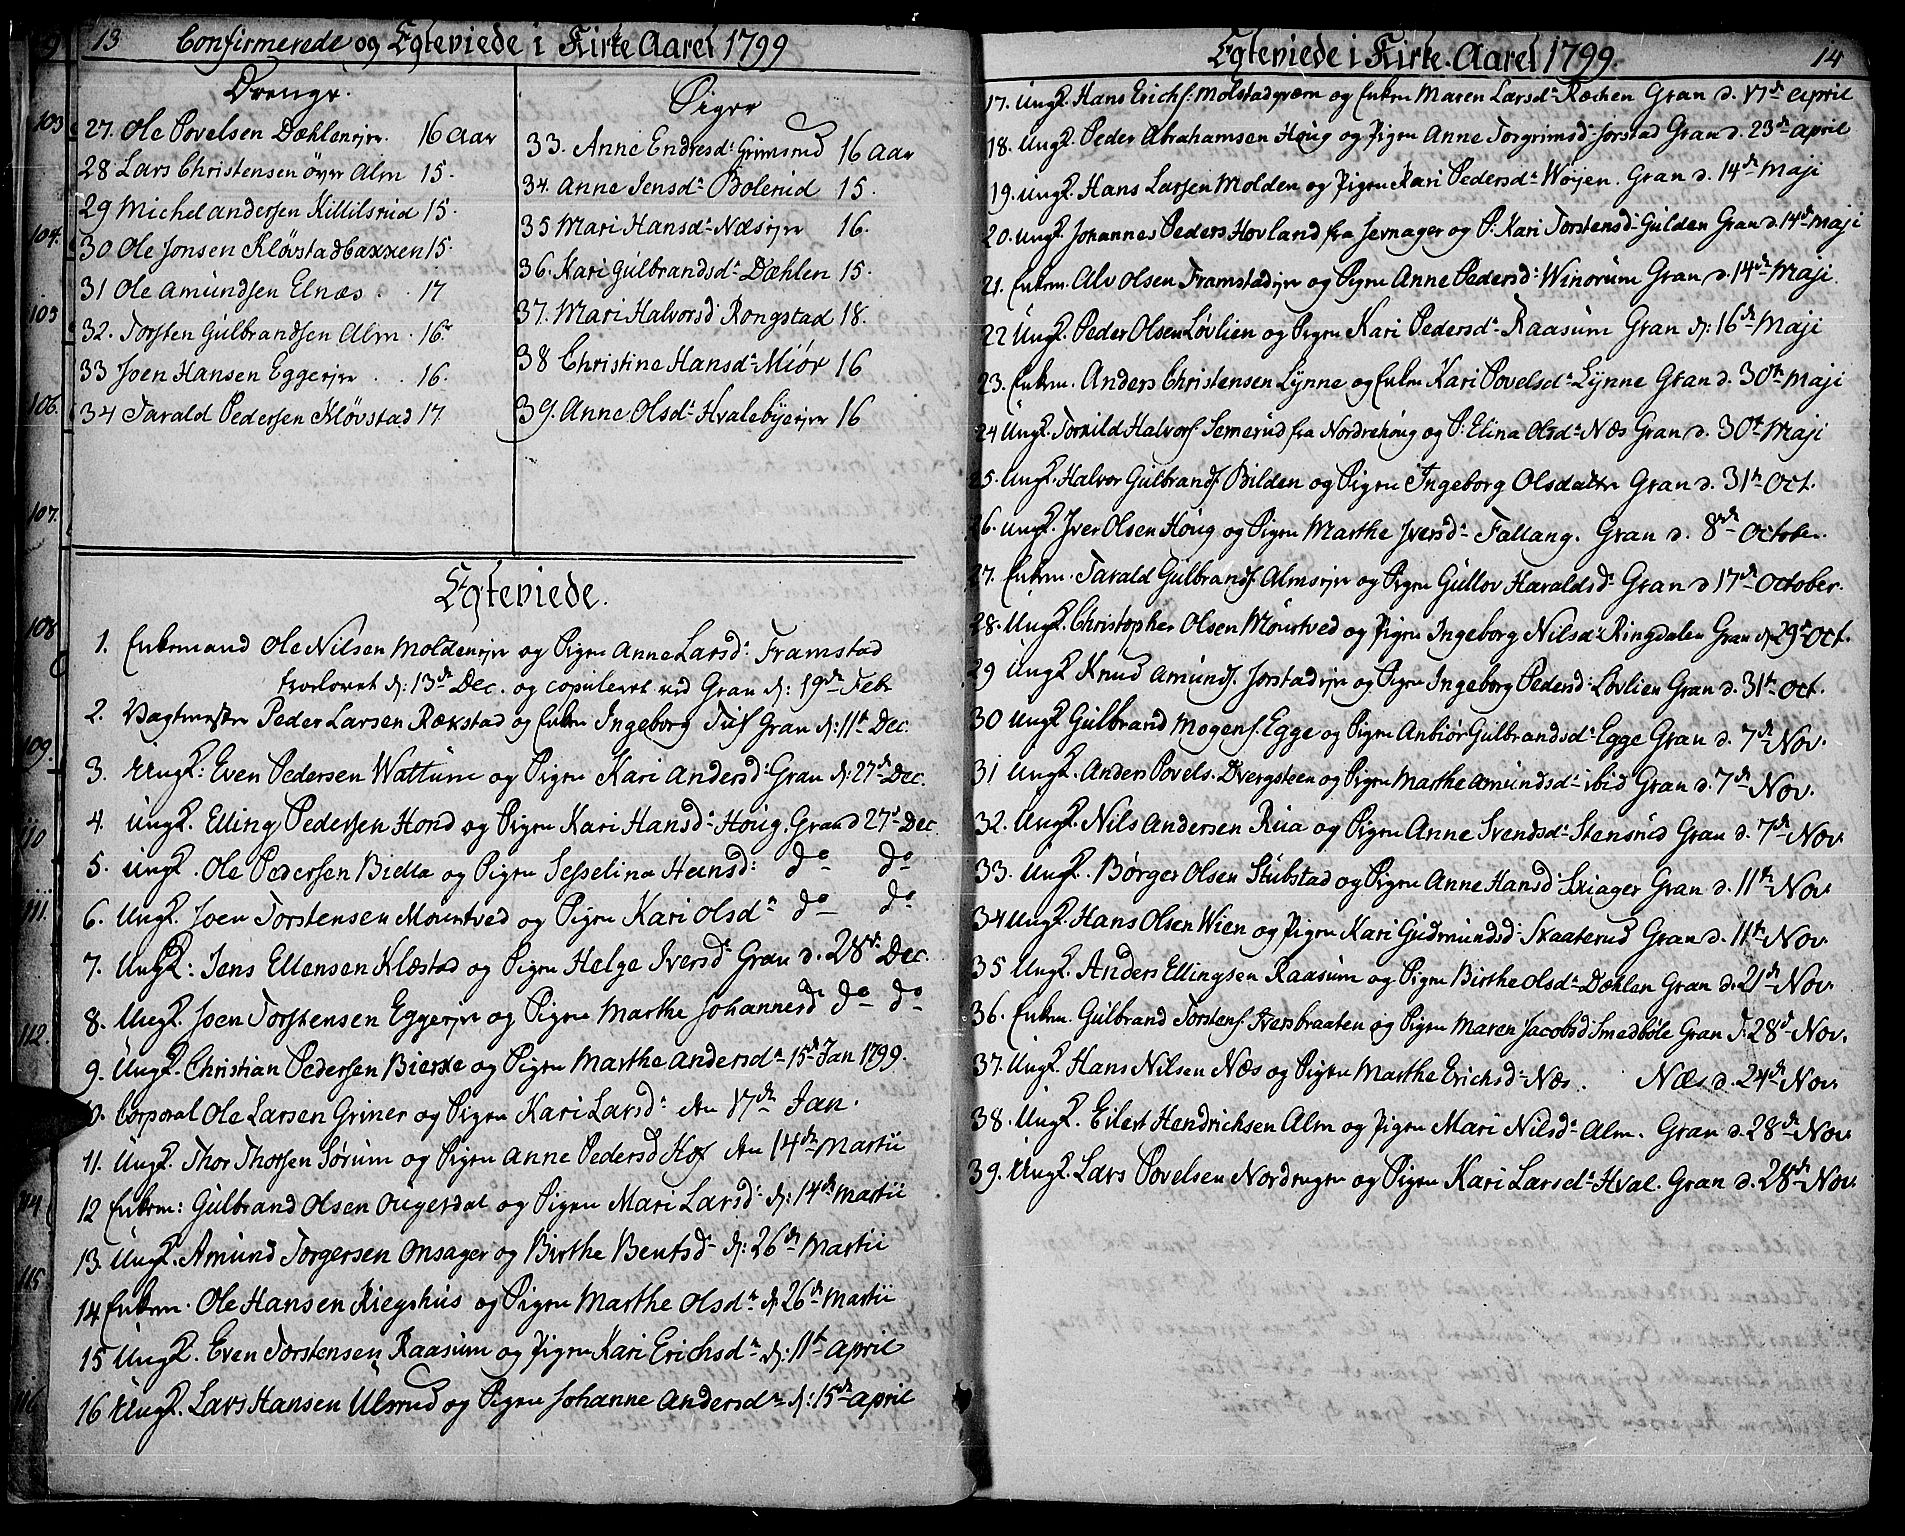 13 Confirmerede og Egteviede i Kirke Aaret 1799
Drenge.
27. Ole Povelsen Dæhleneje. 16 Aar
28 Lars Christensen øvre Alm 15.
29 Michel Andersen Killilsrud 15.
30 Ole Jonsen Kløvstadbakken 15.
31 Ole Amundsen Elnæs . . 17
32. Torsten Gulbrandsen Alm . 16.
33 Joen Hansen Eggeeje . . 16.
34 Tarald Pedersen Kløvstad 17
Piger
33. Anne Endresd: Grimsrud 16 Aar
34. Anne Jensd: Bolerud 15.
35 Mari Hansd: Næseje 16.
36. Kari Gulbrandsd: Dæhlen 15.
37. Mari Halvorsd: Rongstad 18.
38 Christine Hansd: Miør 16
39. Anne Olsd: Hvalebyeeje 16
Egteviede.
1. Enkemand Ole Nilsen Moldeneje og Pigen Anne Larsd: Framstad
trolovet d: 13de Dec. og copuleret ved Gran d: 19de Febr
2. Vagtmester Peder Larsen Rækstad og Enken Ingeborg Tuf Gran d: 11te Dec.
3. Ungk: Even Pedersen Wattum og Pigen Kari Andersd: Gran d: 27de Dec.
4. Ungk. Elling Pedersen Hond og Pigen Kari Hansd: Houg. Gran d 27de Dec.
5. Ungk. Ole Pedersen Biella og Pigen Sesselina Hansd: do do
6. Ungk. Joen Torstensen Mourtved og Pigen Kari Olsd: do do
7. Ungk: Jens Ellensen Klæstad og Pigen Helge Iversd: Gran d. 28de Dec.
8. Ungk. Joen Torstensen Eggeeje og Pigen Marthe Johannesd: do do
9. Ungk. Christian Pedersen Bierke og Pigen Marthe Andersd: 15de Jan 1799.
10. Corporal Ole Larsen Griner og Pigen Kari Larsd: den 17de Jan.
11. Ungk. Thor Thorsen Sørum og Pigen Anne Pedersd Hof den 14de Martii
12 Enkem: Gulbrand Olsen Ougerdal og Pigen Mari Larsd: d: 14de Martii
13. Ungk. Amund Torgersen Onsager og Birthe Bentsd: d: 26de Martii
14 Enkem. Ole Hansen Riegshus og Pigen Marthe Olsd: d: 26de Martii
15 Ungk. Even Torstensen Raasum og Pigen Kari Erichsd: d: 11te April
16 Ungk. Lars Hansen Ulsrud og Pigen Johanne Andersd: d: 15de April
Egteviede i Kirke Aaret 1799. 14
17. Ungk. Hans Erichs: Molstadqværn og Enken Maren Larsd: Ræchen Gran d. 17de April
18. Ungk. Peder Abrahamsen Houg og Pigen Anne Torgrimsd: Jorstad Gran d. 23de April
19. Ungk. Hans Larsen Molden og Pigen Kari Pedersd: Wøjen. Gran d. 14de Maji
20. Ungk. Johannes Peders Hovland fra Jevnager og P: Kari Torstensd: Gulden Gran d. 14de Maji
21. Enkem. Alv Olsen Framstadeje og Pigen Anne Pedersd: Winorum Gran d. 14de Maji.
22 Ungk. Peder Olsen Løvlien og Pigen Kari Pedersd: Raasum Gran d: 16de Maji
23. Enkem. Anders Christensen Lynne og Enken Kari Povelsd: Lynne Gran d. 30te Maji
24 Ungk. Torkild Halvors: Semerud fra Nordrehoug og P: Elina Olsd: Næs Gran d. 30te Maji
25. Ungk. Halvor Gulbrands: Bilden og Pigen Ingeborg Olsdatter Gran d. 31te Oct.
26. Ungk. Iver Olsen Houg og Pigen Marthe Iversd: Fallang. Gran d. 8de October.
27. Enkem. Tarald Gulbrands: Almseje og Pigen Gullov Haraldsd: Gran d 17de October.
28. Ungk. Christopher Olsen Mourtved og Pigen Ingeborg Nilsd: Ringdalen Gran d. 29de Oct.
29 Ungk Knud Amunds. Jorstadeje og Pigen Ingeborg Pedersd: Lovlien Gran d. 31te Oct.
30 Ungk Gulbrand Mogens. Egge og Pigen Anbiør Gulbrandsd: Egge Gran d. 7de Nov.
31 Ungk. Anders Povels. Dvergsteen og Pigen Marthe Amundsd: ibid Gran d. 7de Nov.
32. Ungk. Nils Andersen Rua og Pigen Anne Svendsd: Stensrud Gran d. 7de Nov.
33. Ungk. Børger Olsen Stubstad og Pigen Anne Hansd: Skiager Gran d. 11te Nov
34 Ungk. Hans Olsen Wien og Pigen Kari Gudmundsd: Skaaterud Gran d. 11te Nov.
35 Ungk. Anders Ellingsen Raasum og Pigen Birthe Olsd: Dæhlen Gran d. 21de Nov.
36. Enkem. Gulbrand Torstens. Iversbraaten og Pigen Maren Jacobsd Smedbøle Gran d. 28de Nov.
37. Ungk. Hans Nilsen Næs og Pigen Marthe Erichsd: Næs. Næs d. 24de Nov
38. Ungk. Eilert Hendrichsen Alm og Pigen Mari Nilsd: Alm. Gran d. 28de Nov
39. Ungk. Lars Povelsen Nordengen og Pigen Kari Larsd: Hval. Gran d. 28de Nov.